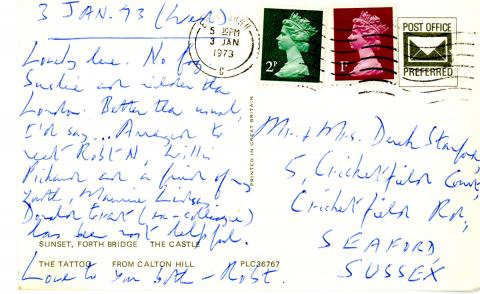 3 JAN. 73 (Wed)
Lovely here. No fog.
Sunshine and milder than
London. Better than usual,
I'd say... Arranged to
meet Robt N, Willi
Richard and a friend of my
youth, Maurice Lindsay.
Donald Grant (ex-colleague)
has been most helpful.
Love to you both – Robt.
SUNSET, FORTH BRIDGE THE CASTLE
THE TATTOO FROM CALTON HILL PLC36767
PRINTED IN GREAT BRITAIN
5 15PM
3 JAN
1973
C
2P
1P
POST OFFICE
PREFERRED
Mr. & Mrs. Derek Stanford,
5, Cricketfield Court,
Cricketfield Rd.,
SEAFORD,
SUSSEX